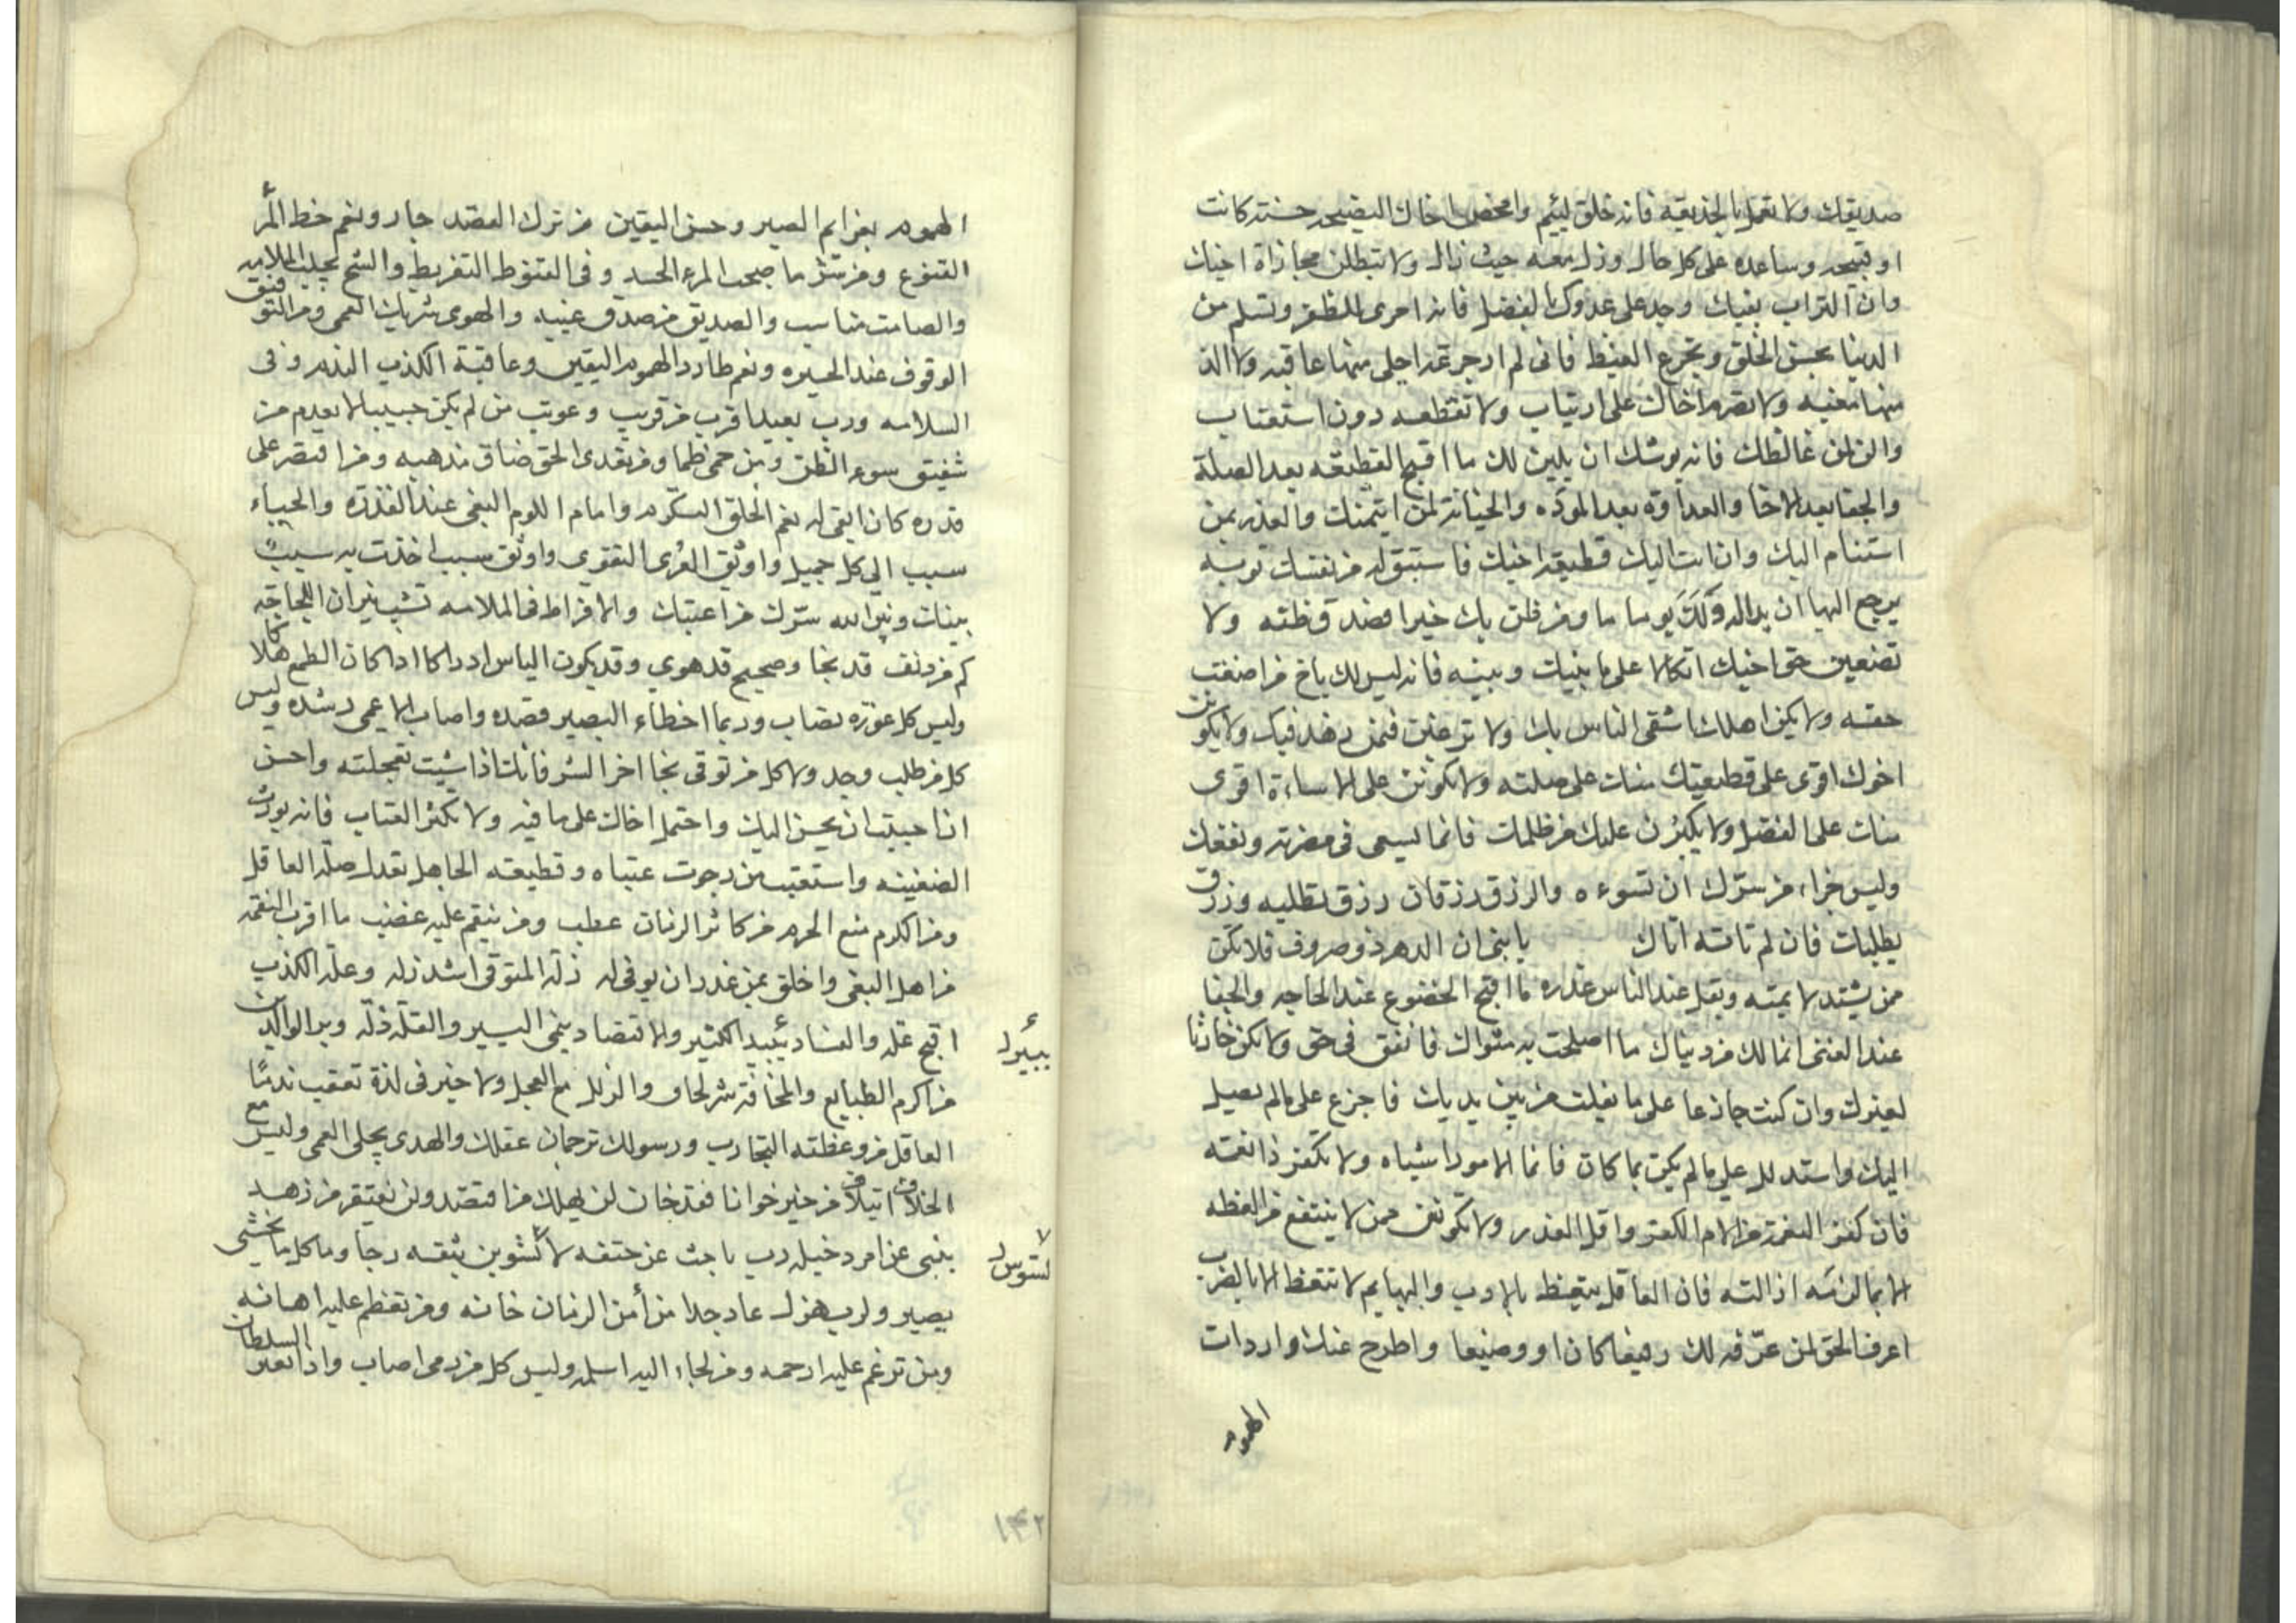 صديقك ولا تعمل بالخديعه فانه خلق لئيم وامحض اخاك النصيحه حسنة كانت
او قبيحه وساعده على كل حال وزل معه حيث زال ولا تطلبن مجازاة اخيك
وان حثا التراب بفيك وجد على عدوك بالفضل فانه احرى للظفر وتسلم من
الدنيا بحسن الخلق وتجرع الغيظ فانى لم ار جرعة احلى منها عاقبه ولا الذ
منها مغبه ولا تصرم اخاك على ارتياب ولا تقطعه دون استعتاب
ولن لمن غالظك فانه يوشك ان يلين لك ما اقبح القطيعه بعد الصلة
والجفا بعد الاخا والعداوة بعد المودّه والخيانة لمن ايتمنك والغدر بمن
استنام اليك وان انت قطيعة اخيك فاستبق له من نفسك توبه
يرجع اليها ان بدا له ولك يوما ما ومن ظن بك خيرا فصدق ظنه ولا
تضيعن حق اخيك اتكالا على ما بينك وبينه فانه ليس لك باخ من اضعت
حقه ولا يكن اهلك اشقى الناس بك ولا ترغبن فيمن زهد فيك ولا يكونن
اخوك اقوى على قطيعتك منك على صلته ولا تكونن على الاساءة اقوى
منك على الفضل ولا يكبرن عليك من ظلمك فانما يسعى فى مضرته ونفعك
وليس جزاء من سرّك ان تسوءه والرزق رزقان رزق تطلبه ورزق
يطلبك فان لم تاته اتاك يا بنى ان الدهر ذو صروف فلا تكن
ممن يشتد لايمته ويقل عند الناس عذره ما اقبح الخضوع عند الحاجه والجفا
عند الغنى انما لك من دنياك ما اصلحت به مثواك فانفق فى حق ولا تكن خازنا
لغيرك وان كنت جازعا على ما تفلت من بين يديك فاجزع على ما لم يصل
اليك واستدلل على ما لم يكن بما كان فانما الامور اشباه ولا تكفر ذا نعمه
فان كفر النعمة من الام الكفر واقبل العذر ولا تكونن ممن لا ينتفع من العظه
الا بما لزمه ازالته فان العاقل يتعظ بالادب والبهايم لا تتعظ الا بالضرب
اعرف الحق لمن عرّفه لك رفيعا كان او وضيعا واطرح عنك واردات
الهموم
الهموم بعزايم الصبر وحسن اليقين من ترك القصد جار ونعم حظ المرء
القنوع ومن شر ما صحب المرء الحسد وفى القنوط التفريط والشح يجلب الملامه
والصاحب مناسب والصديق من صدق غيبه والهوى شريك العمى ومن التوفيق
الوقوف عند الحيره ونعم طارد الهموم اليقين وعاقبة الكذب الندم وفى
السلامه ورب بعيد اقرب من قريب وغريب من لم يكن حبيب لا يعدم من
شفيق سوء الظن ومن حمى ظما ومن تعدى الحق ضاق مذهبه ومن اقتصر على
قدره كان ابقى له نعم الخلق التكرم والام اللوم البغى عند القدره والحياء
سبب الى كل جميل واوثق العرى التقوى واوثق سبب اخذت به سبب
بينك وبين الله سرّك من اعتبك والافراط فى الملامه تشب نيران اللجاجه
كم من دنف قد نجا وصحيح قد هوى وقد يكون الياس ادراكا اذا كان الطمع هلاكا
وليس كل عورة تصاب وربما اخطاء البصير قصده واصاب الاعمى رشده وليس
كل من طلب وجد ولا كل من توقى نجا اخر الشر فانك اذا شيت تعجلته واحسن
ان احببت ان يحسن اليك واحتمل اخاك على ما فيه ولا تكثر العتاب فانه يورث
الضغينه واستعتب من رجوت عتباه وقطيعه الجاهل تعدل صله العاقل
ومن الكرم منع الحزم من كاثر الزمان عطب ومن ينقم عليه غضب ما اقرب النقمه
من اهل البغى واخلق بمن غدر ان يوفى له زلّه المتوقى اشد زله وعلّه الكذب
اقبح علّه والفساد يبيد الكثير والاقتصاد ينمى اليسير والقلّه ذلّه وبر الوالدين
يبير
من اكرم الطبايع والمخافة شر لحاف والزلل مع العجل ولا خير فى لذة تعقب ندمًا
العاقل من وعظته التجارب ورسولك ترجمان عقلك والهدى يجلى العمى وليس مع
الخلاف ايتلاف من خير خوانا فقد خان لن يهلك من اقتصد ولن يفتقر من زهد
ينبى عن امر دخيله رب باحث عن حتفه لا تشوبن بثقه رجا وما كل ما يخشى
يصير ولرب هزل عاد جدا من أمن الزمان خانه ومن تعظم عليه اهانه
ومن ترغم عليه ارغمه ومن لجاء اليه اسلمه وليس كل من رمى اصاب واذا تغير السلطان
١٤٢